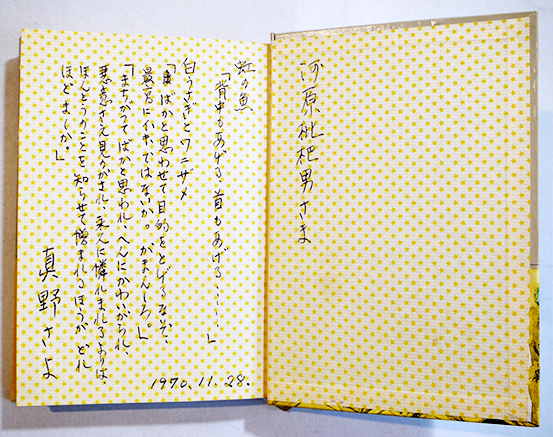 河原枇杷男さま
虹の魚
「背中もあげる、首もあげる……」
白うさぎとワニザメ
「ばかと思わせて目的をとげるなぞ、
最高にイキではないか。がまんしろ。」
「まちがってばかと思われ、へんにかわいがられ、
悪意さえ見すかされ、永久に憐れまれるよりは、
ほんとうのことを知らせて憎まれるほうが、どれ
ほどましか。」
真野さよ
1970.11.28.